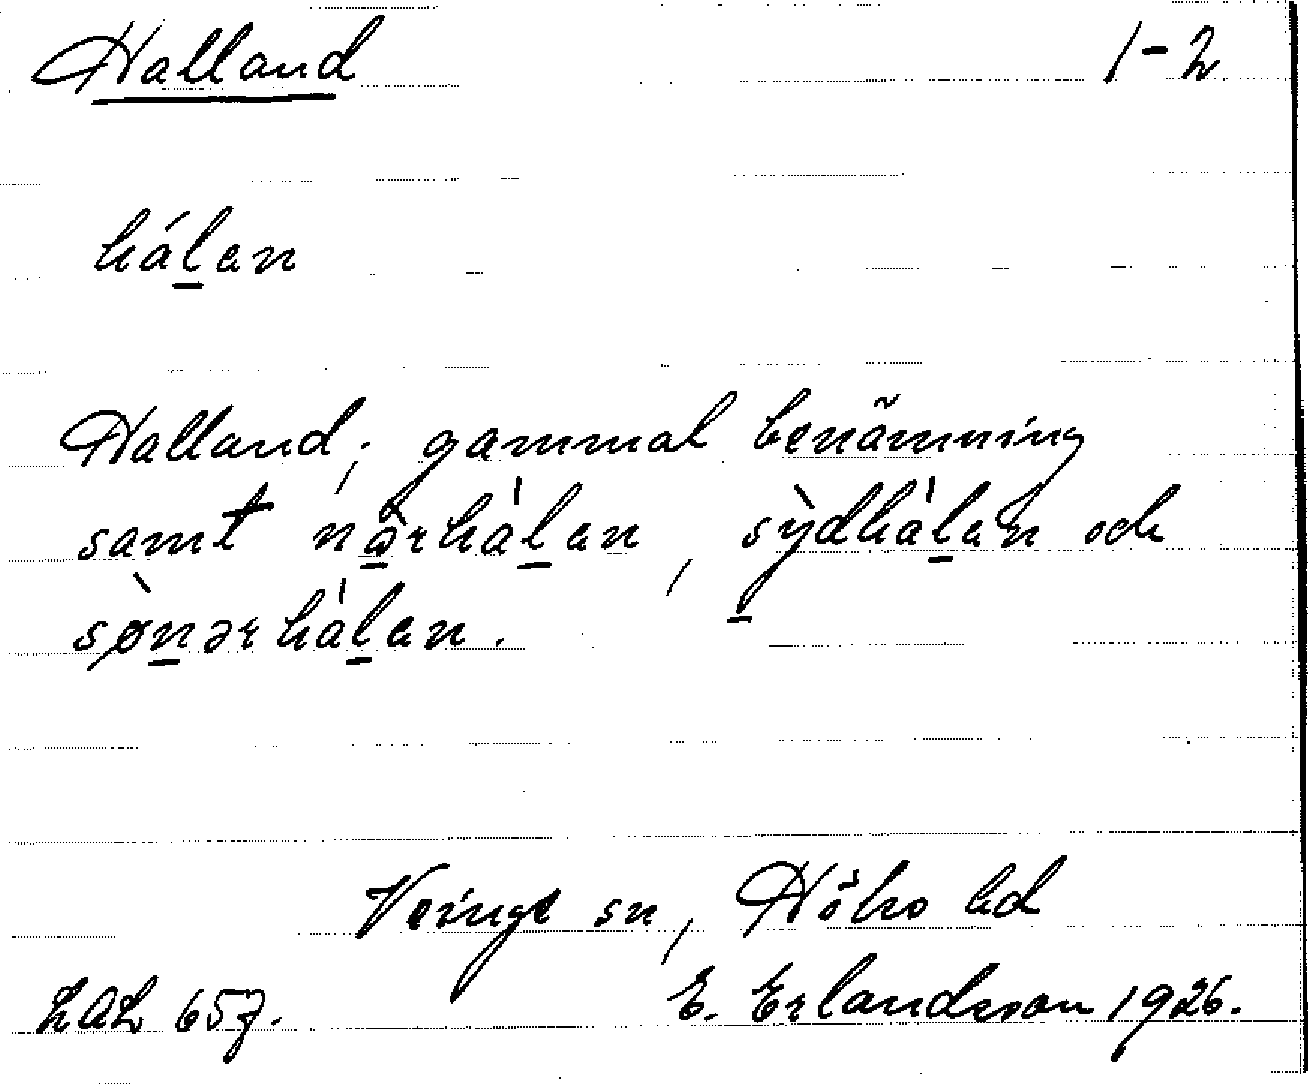 Halland 1-2
hálan
Halland; gammal benämning
samt nǿrhàlan, sỳdhàlan och
sønərhàlan.
Veinge sn, Höks hd
LAL 657. E. Erlandsson 1926.